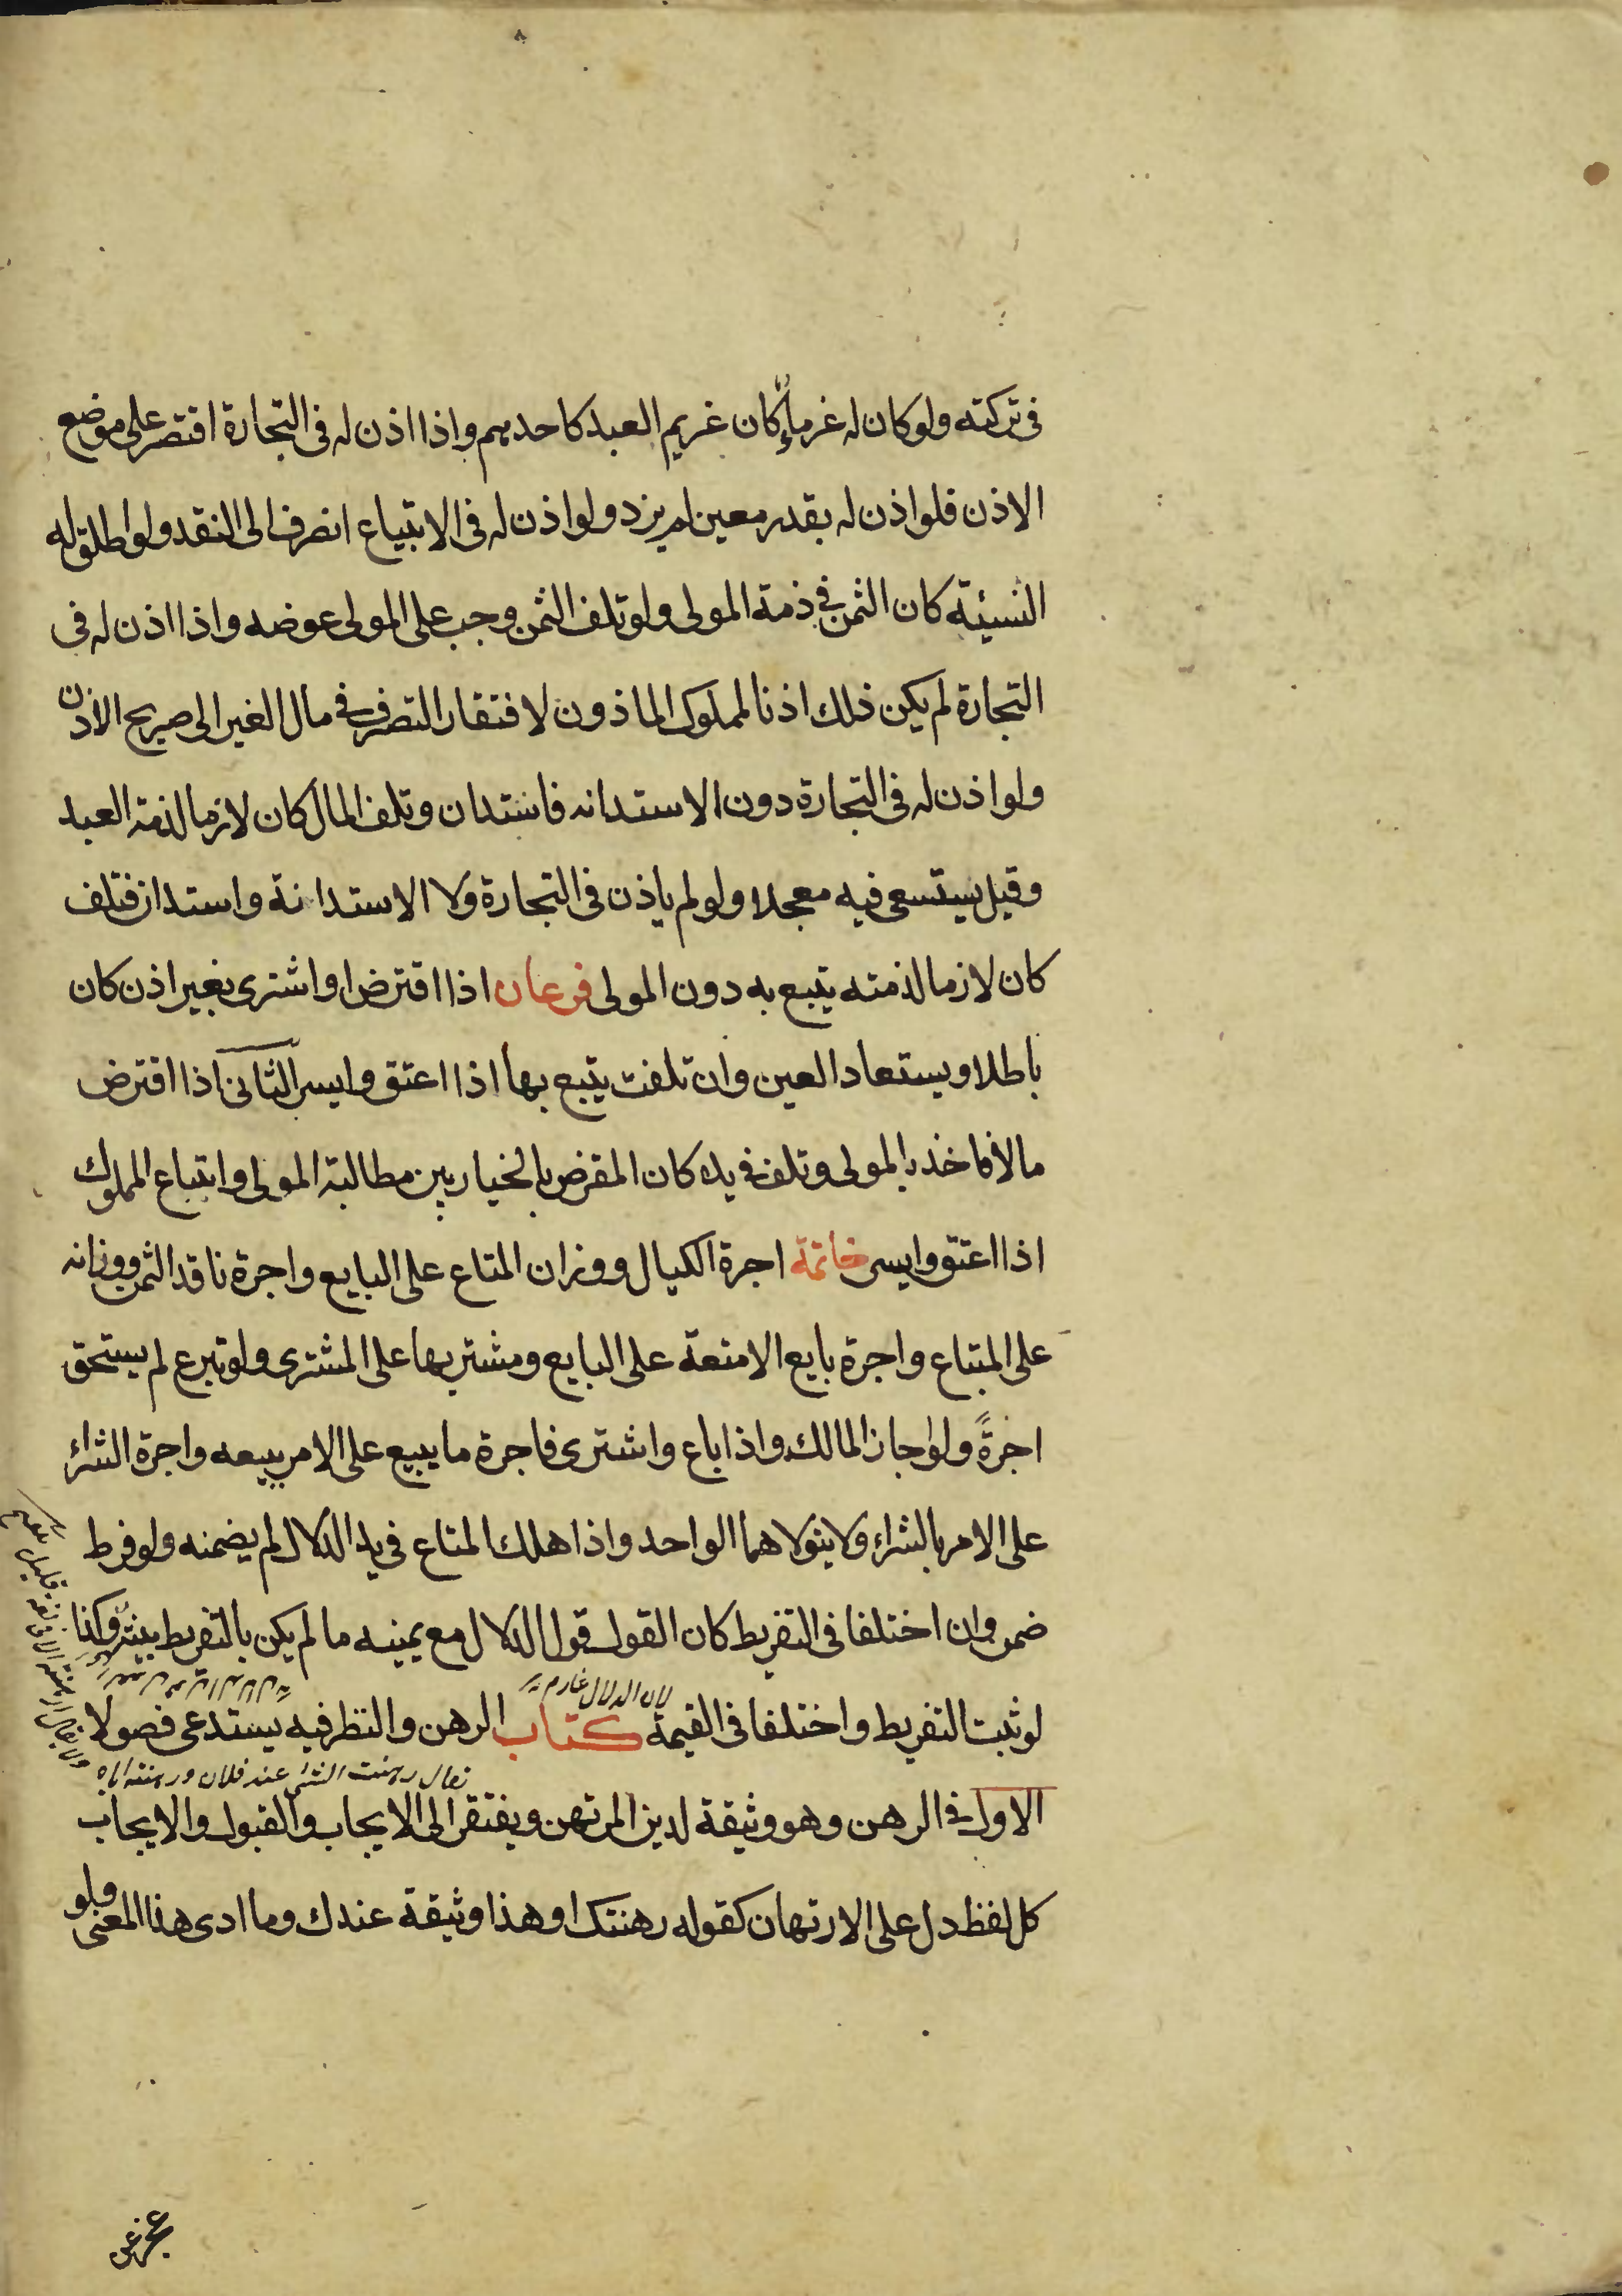 في تركته ولو كان له غرماء كان غريم العبد كاحدهم واذا اذن له في التجارة اقتصر على موضع
الاذن فلو اذن له بقدر معين لم يزد ولو اذن له في الابتياع انصرف الى النقد ولو اطلق له
النسيئة كان الثمن في ذمة المولى ولو تلف الثمن وجب على المولى عوضه واذا اذن له في
التجارة لم يكن ذلك اذنا لمملوك الماذون لافتقار التصرف في مال الغير الى صريح الاذن
ولو اذن له في التجارة دون الاستدانه فاستدان وتلف المال كان لازما لذمة العبد
وقيل يستسعى فيه معجلا ولو لم ياذن في التجارة ولا الاستدانة واستدان فتلف
كان لازما لذمته يتبع به دون المولى فرعان اذا اقترض او اشترى بغير اذن كان
باطلا ويستعاد العين وان تلفت يتبع بها اذا اعتق وايسر الثانى اذا اقترض
مالا فاخذه المولى وتلف في يده كان المقرض بالخيار بين مطالبة المولى واتباع المملوك
اذا اعتق وايسر خاتمة اجرة الكيال ووزان المتاع على البايع واجرة ناقد الثمن ووزانه
على المبتاع واجرة بايع الامتعة على البايع ومشتريها على المشترى ولو تبرع لم يستحق
اجرةً ولو اجاز المالك واذا باع واشترى فاجرة ما يبيع على الامر ببيعه واجرة الشراء
على الامر بالشراء ولا يتولاهما الواحد واذا هلك المتاع في يد الدلال لم يضمنه ولو فرط
ضمن وان اختلفا في التفريط كان القول قول الدلال مع يمينه ما لم يكن بالتفريط بينة وكذا
لان الدلال غارم
لو ثبت التفريط واختلفا في القيمة كتاب الرهن والنظر فيه يستدعى فصولا
يقال رهنت الشئ عند فلان ورهنته اياه
الاول في الرهن وهو وثيقة لدين المرتهن ويفتقر الى الايجاب والقبول والايجاب
كل لفظ دل على الارتهان كقوله رهنتك او هذا وثيقة عندك وما ادى هذا المعنى ولو